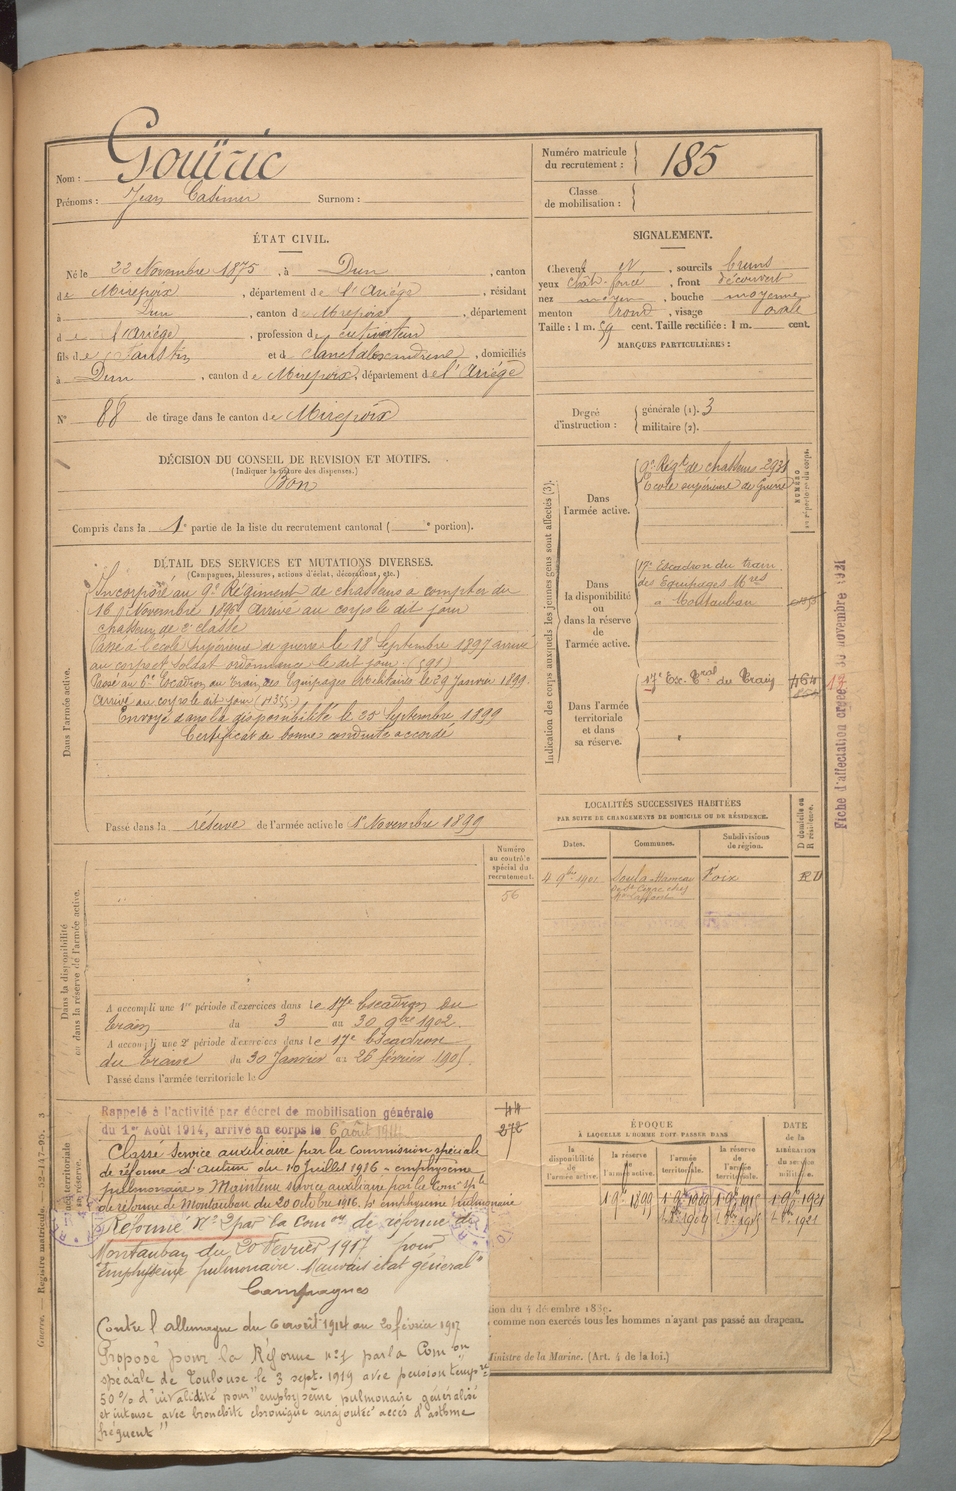 Nom : Gouïric
Prénoms : Jean Casimir Surnom :
Numéro matricule du recrutement : 185
Classe de mobilisation :
ÉTAT CIVIL.
Né le 22 Novembre 1875, à Dun, canton
de Mirepoix, département de l'Ariége, résidant
à Dun, canton de Mirepoix, département
de l'Ariége, profession de cultivateur
fils de Faustin et de, domiciliés
à Dun, canton de Mirepoix, département de l'Ariége
N° 88 de tirage dans le canton de Mirepoix
SIGNALEMENT.
Cheveux N, sourcils bruns
yeux chât. foncé, front découvert
nez moyen, bouche moyenne
menton rond, visage ovale
Taille : 1 m. 59 cent. Taille rectifiée : 1 m. cent.
MARQUES PARTICULIÈRES :
Degré d'instruction : générale (1). 3
militaire (2).
DÉCISION DU CONSEIL DE REVISION ET MOTIFS.
(Indiquer la nature des dispenses.)
Bon
Compris dans la 1e partie de la liste du recrutement cantonal ( e portion).
DÉTAIL DES SERVICES ET MUTATIONS DIVERSES.
(Campagnes, blessures, actions d'éclat, décorations, etc.)
Dans l'armée active.
Incorporé au 9e Régiment de chasseurs a compter du
16 Novembre 1896 arrivé au corps le dit jour
chasseur de 2e classe
Passé à l'école supérieure de guerre le 18 Septembre 1897 arrivé
au corps et soldat ordonnance le dit jour. (591)
Passé au Escadron du train des Equipages Militaires le 29 Janvier 1899.
Arrivé au corps le dit jour
Envoyé dans la disponibilité le 20 Septembre 1899
Certificat de bonne conduite accordé
Passé dans la réserve de l'armée active le 1er Novembre 1899
Indication des corps auxquels les jeunes gens sont affectés (3).
Dans l'armée active.
9e Régt de chasseurs 2931
Ecole supérieure de Guerre
NUMÉRO au répertoire du corps.
Dans la disponibilité ou dans la réserve de l'armée active.
17e Escadron du train
des Equipages Mres
a Montauban
Dans l'armée territoriale et dans sa réserve.
17e Esc. Tral du Train 464
Fiche d'affectation créée 30 novembre 1921
LOCALITÉS SUCCESSIVES HABITÉES
PAR SUITE DE CHANGEMENTS DE DOMICILE OU DE RÉSIDENCE.
Dates. Communes. Subdivisions de région. D domicile ou R résidence.
4 9bre 1901 Foix
Numéro au contrôle spécial du recrutement.
56
Dans la disponibilité ou dans la réserve de l'armée active.
A accompli une 1re période d'exercices dans le 17e Escadron du
train du 3 au 30 9bre 1902.
A accompli une 2e période d'exercices dans le 17e Escadron
du train du 30 Janvier au 26 février 1905.
Passé dans l'armée territoriale le
Rappelé à l'activité par décret de mobilisation générale
du 1er Août 1914, arrivé au corps le 6 août 1914
272
Classé Service auxiliaire par la Commission spéciale
de réforme d'Autun du 10 Juillet 1916 - emphysème
pulmonaire - Maintenu service auxiliaire par la Comon sple
de réforme de Montauban du 20 octobre 1916. pr emphysème pulmonaire
Réformé N° 2 par la Comon de réforme de
Montauban du 20 Février 1917 pour
"Emphysème pulmonaire. Mauvais état général"
Campagnes
Contre l'allemagne du 6 août 1914 au 20 février 1917
Proposé pour la Réforme n° 1 par la Comon
spéciale de Toulouse le 3 sept. 1919 avec pension tempre
50% d'invalidité pour "emphysème pulmonaire généralisé
et intense avec bronchite chronique surajoutée accès d'asthme
fréquent"
ÉPOQUE
À LAQUELLE L'HOMME DOIT PASSER DANS
la disponibilité de l'armée active. la réserve de l'armée active. l'armée territoriale. la réserve de l'armée territoriale.
DATE de la LIBÉRATION du service militaire.
1 9bre 1899 1 9bre 1909 1 9bre 1915 1 9bre 1921
ion du 4 décembre 1889.
comme non exercés tous les hommes n'ayant pas passé au drapeau.
Ministre de la Marine. (Art. 4 de la loi.)
Guerre. — Registre matricule.